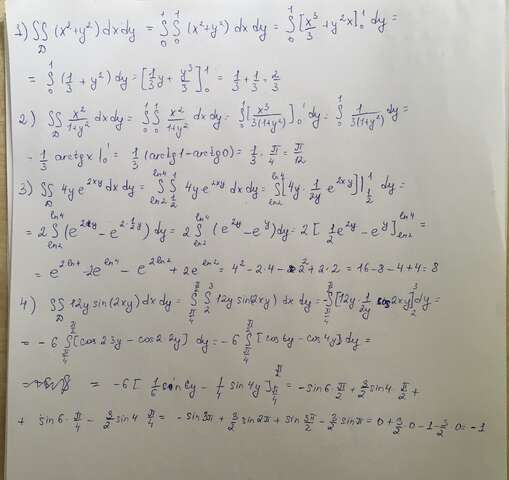 1) ∬_D (x²+y²) dx dy = ∫₀¹ ∫₀¹ (x²+y²) dx dy = ∫₀¹ [x³/3 + y²x]₀¹ dy =
= ∫₀¹ (1/3 + y²) dy = [1/3 y + y³/3]₀¹ = 1/3 + 1/3 = 2/3
2) ∬_D x²/(1+y²) dx dy = ∫₀¹ ∫₀¹ x²/(1+y²) dx dy = ∫₀¹ [x³/(3(1+y²))]₀¹ dy = ∫₀¹ 1/(3(1+y²)) dy =
- 1/3 arctg x |₀¹ = 1/3 (arctg 1 - arctg 0) = 1/3 · π/4 = π/12
3) ∬_D 4y e^(2xy) dx dy = ∫_(ln2)^(ln4) ∫_(1/2)^1 4y e^(2xy) dx dy = ∫_(ln2)^(ln4) [4y · 1/(2y) e^(2xy)]|_(1/2)^1 dy =
= 2 ∫_(ln2)^(ln4) (e^(2·1y) - e^(2·1/2 y)) dy = 2 ∫_(ln2)^(ln4) (e^(2y) - e^y) dy = 2 [1/2 e^(2y) - e^y]_(ln2)^(ln4) =
= e^(2ln4) - 2e^(ln4) - e^(2ln2) + 2e^(ln2) = 4² - 2·4 - 2² + 2·2 = 16 - 8 - 4 + 4 = 8
4) ∬_D 12y sin(2xy) dx dy = ∫_(π/4)^(π/2) ∫₂³ 12y sin(2xy) dx dy = -∫_(π/4)^(π/2) [12y · 1/(2y) cos 2xy]₂³ dy =
= -6 ∫_(π/4)^(π/2) [cos 2·3y - cos 2·2y] dy = -6 ∫_(π/4)^(π/2) [cos 6y - cos 4y] dy =
= -6 [1/6 sin 6y - 1/4 sin 4y]_(π/4)^(π/2) = -sin 6·π/2 + 3/2 sin 4·π/2 +
+ sin 6·π/4 - 3/2 sin 4·π/4 = -sin 3π + 3/2 sin 2π + sin 3π/2 - 3/2 sin π = 0 + 3/2·0 - 1 - 3/2·0 = -1